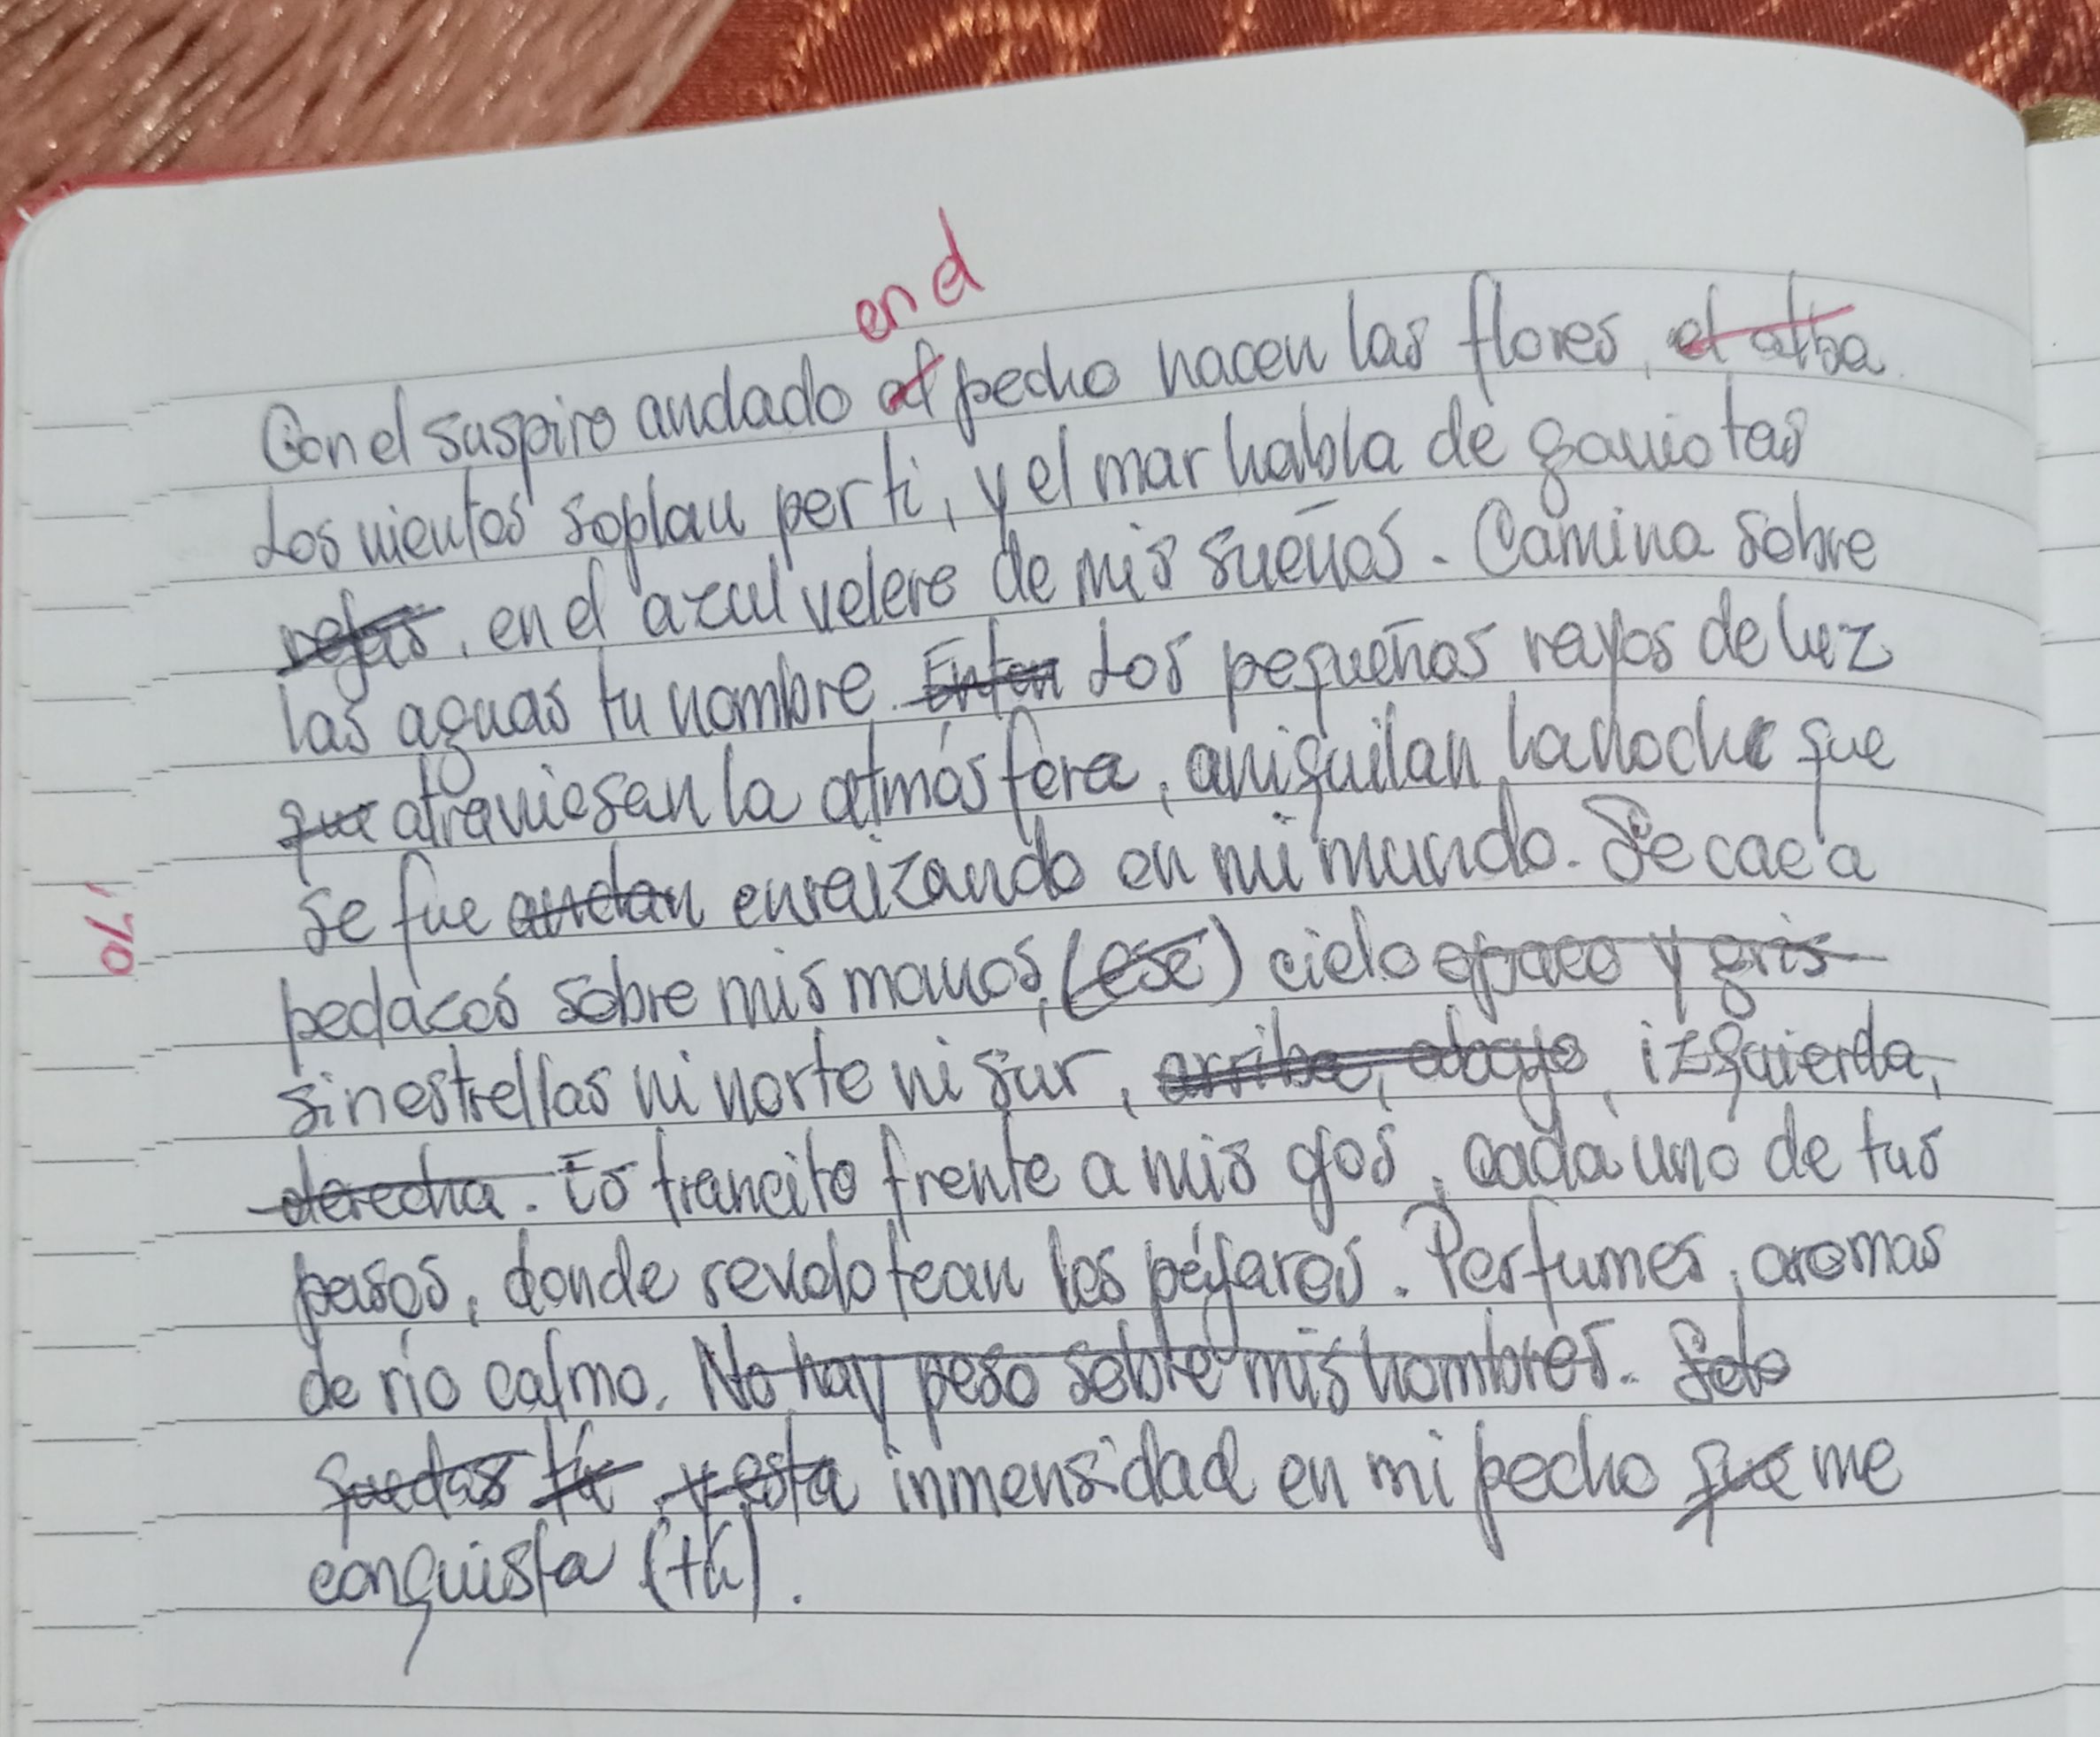 en el
Con el suspiro andado al pecho nacen las flores, el alba
Los vientos soplan por ti, y el mar habla de gaviotas
rojas, en el azul velero de mis sueños. Camina sobre
las aguas tu nombre. Los pequeños rayos de luz
que atraviesan la atmósfera, aniquilan la noche que
se fue andan enraizando en mi mundo. Se cae a
pedazos sobre mis manos, (ese) cielo opaco y gris
sin estrellas ni norte ni sur, arriba, abajo, izquierda,
derecha. Es trancito frente a mis ojos, cada uno de tus
pasos, donde revolotean los pájaros. Perfumes, aromas
de río calmo. No hay peso sobre mis hombres. Solo
quedas tú y esta inmensidad en mi pecho que me
conquista (tú).
70